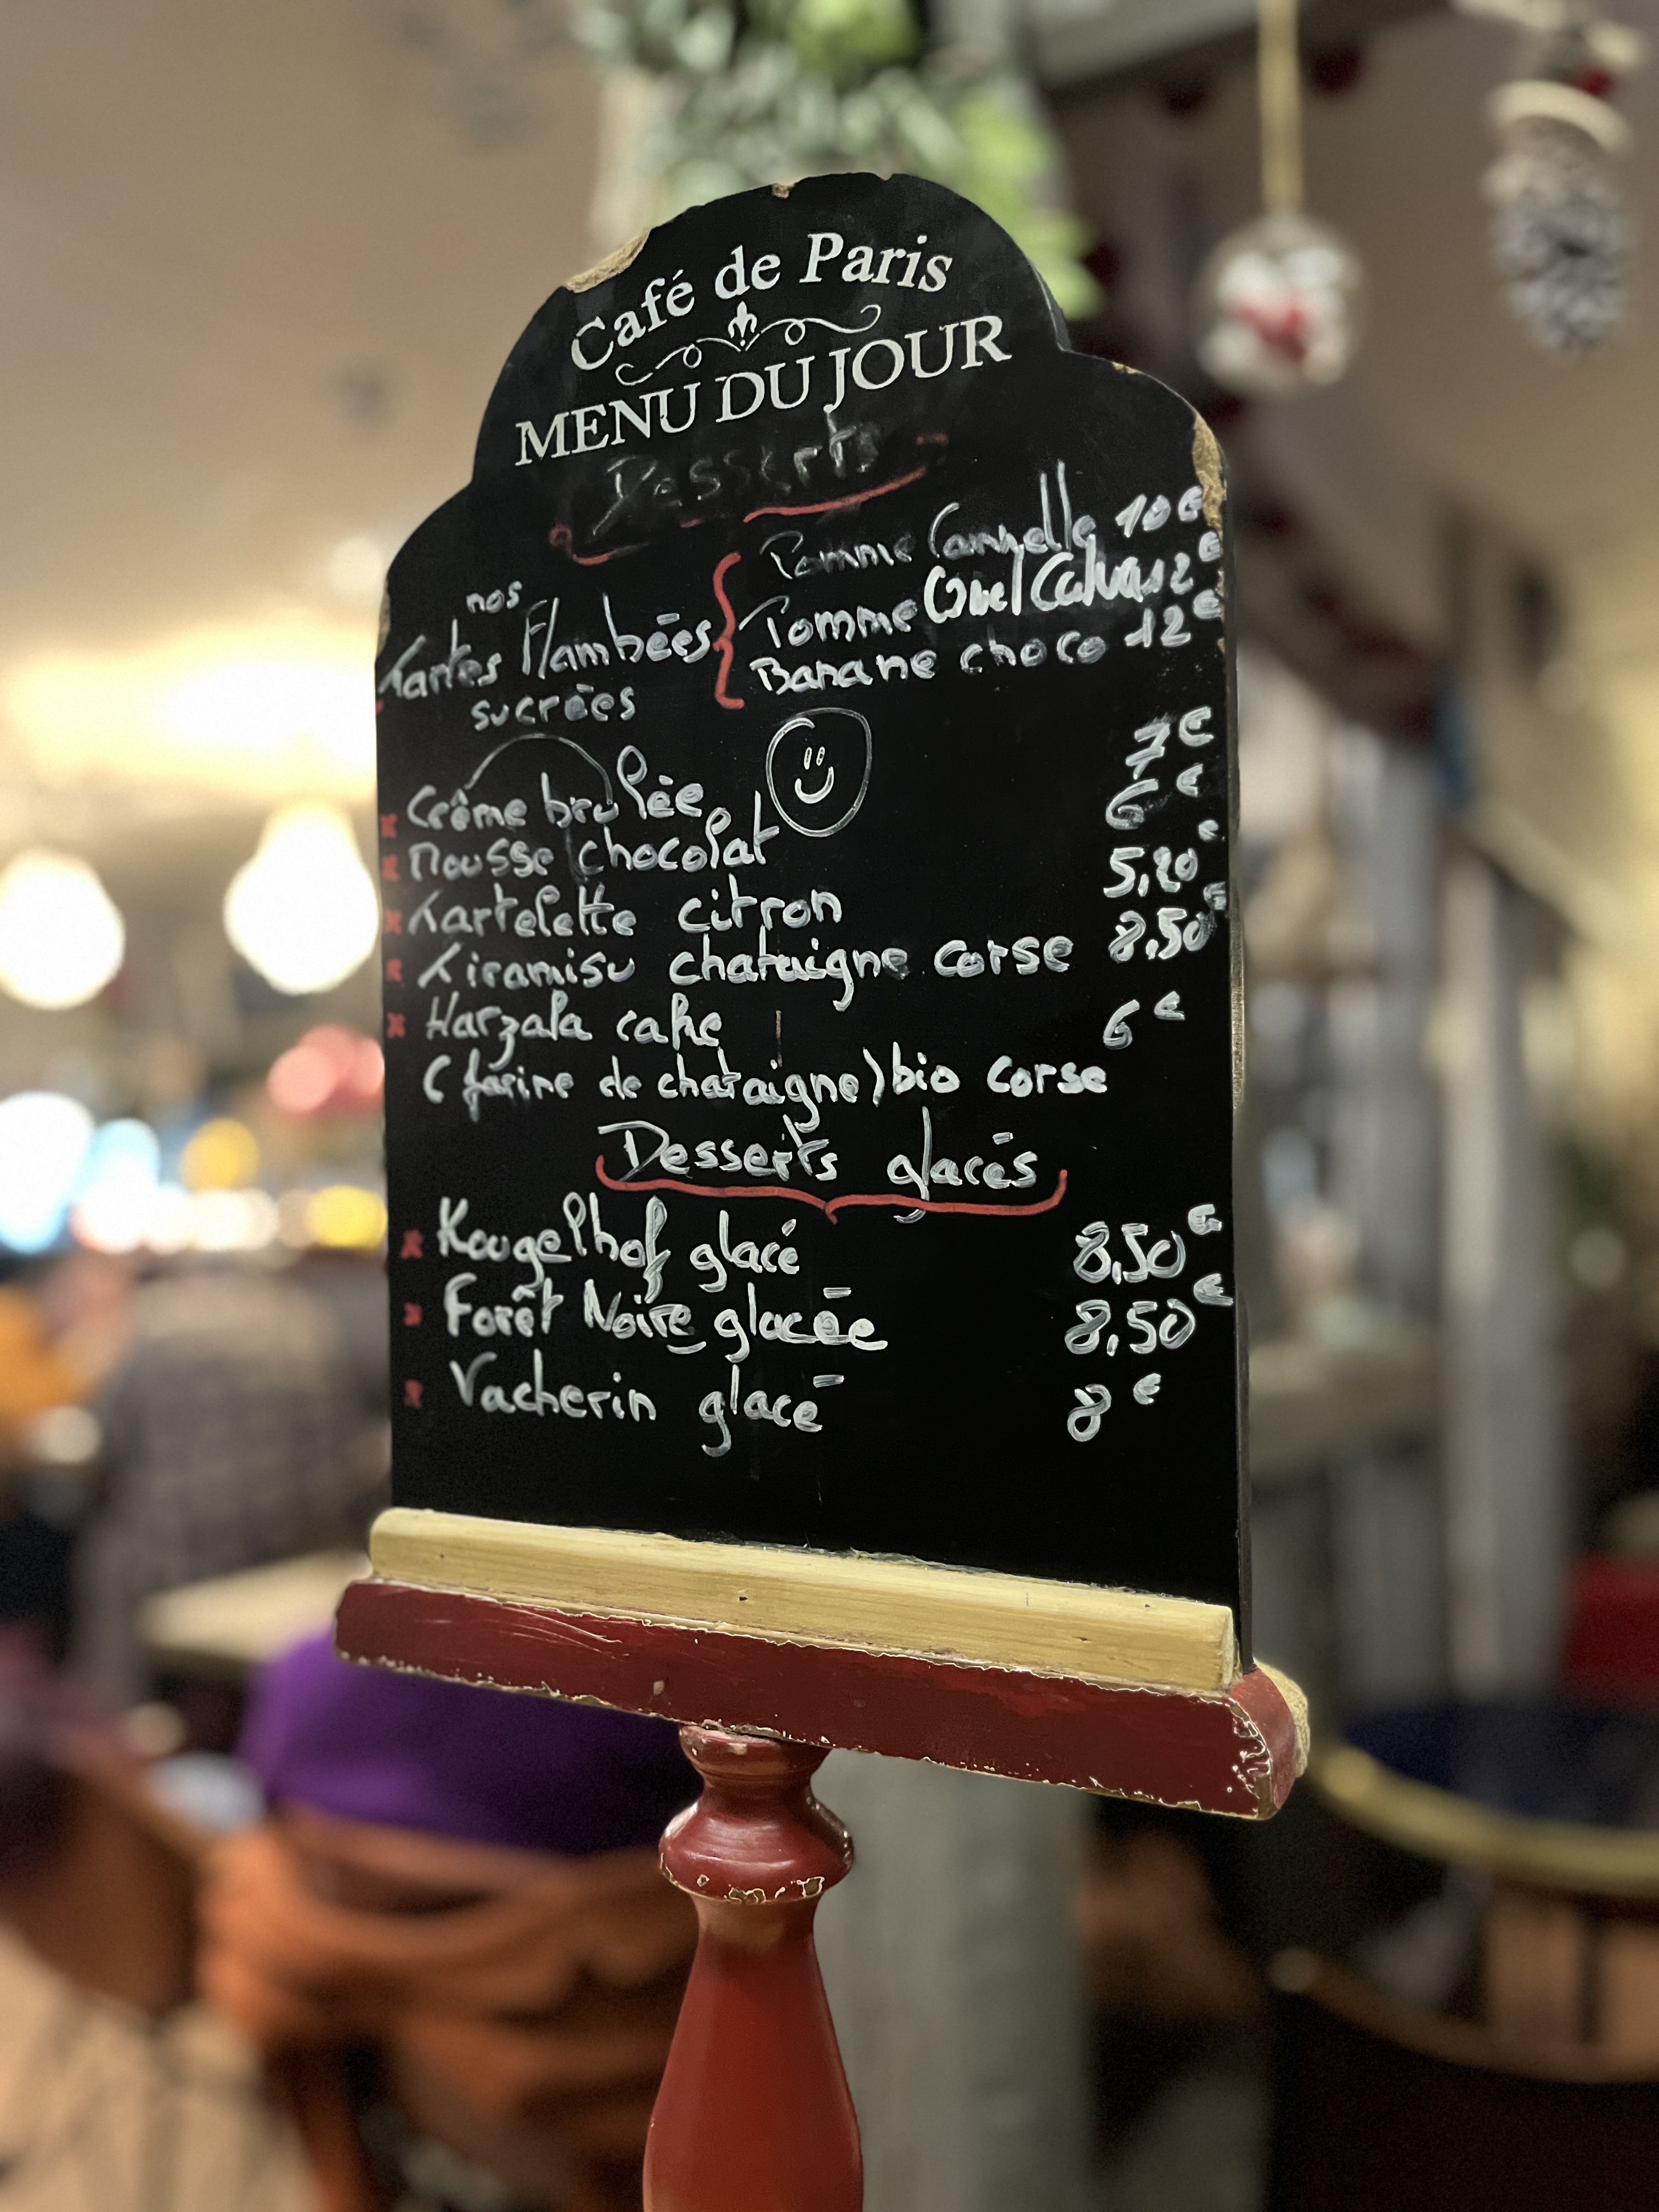 Café de Paris
MENU DU JOUR
Desserts
nos
Tartes Flambées
sucrées
Pomme Cannelle 10€
Pomme Calva 12€
Banane choco 12€
Crême brulée 7€
Mousse chocolat 6€
Tartelette citron 5,20€
Tiramisu chataigne corse 8,50€
Harzala cake 6€
(farine de chataigne) bio corse
Desserts glacés
Kougelhof glacé 8,50€
Forêt Noire glacée 8,50€
Vacherin glacé 8€